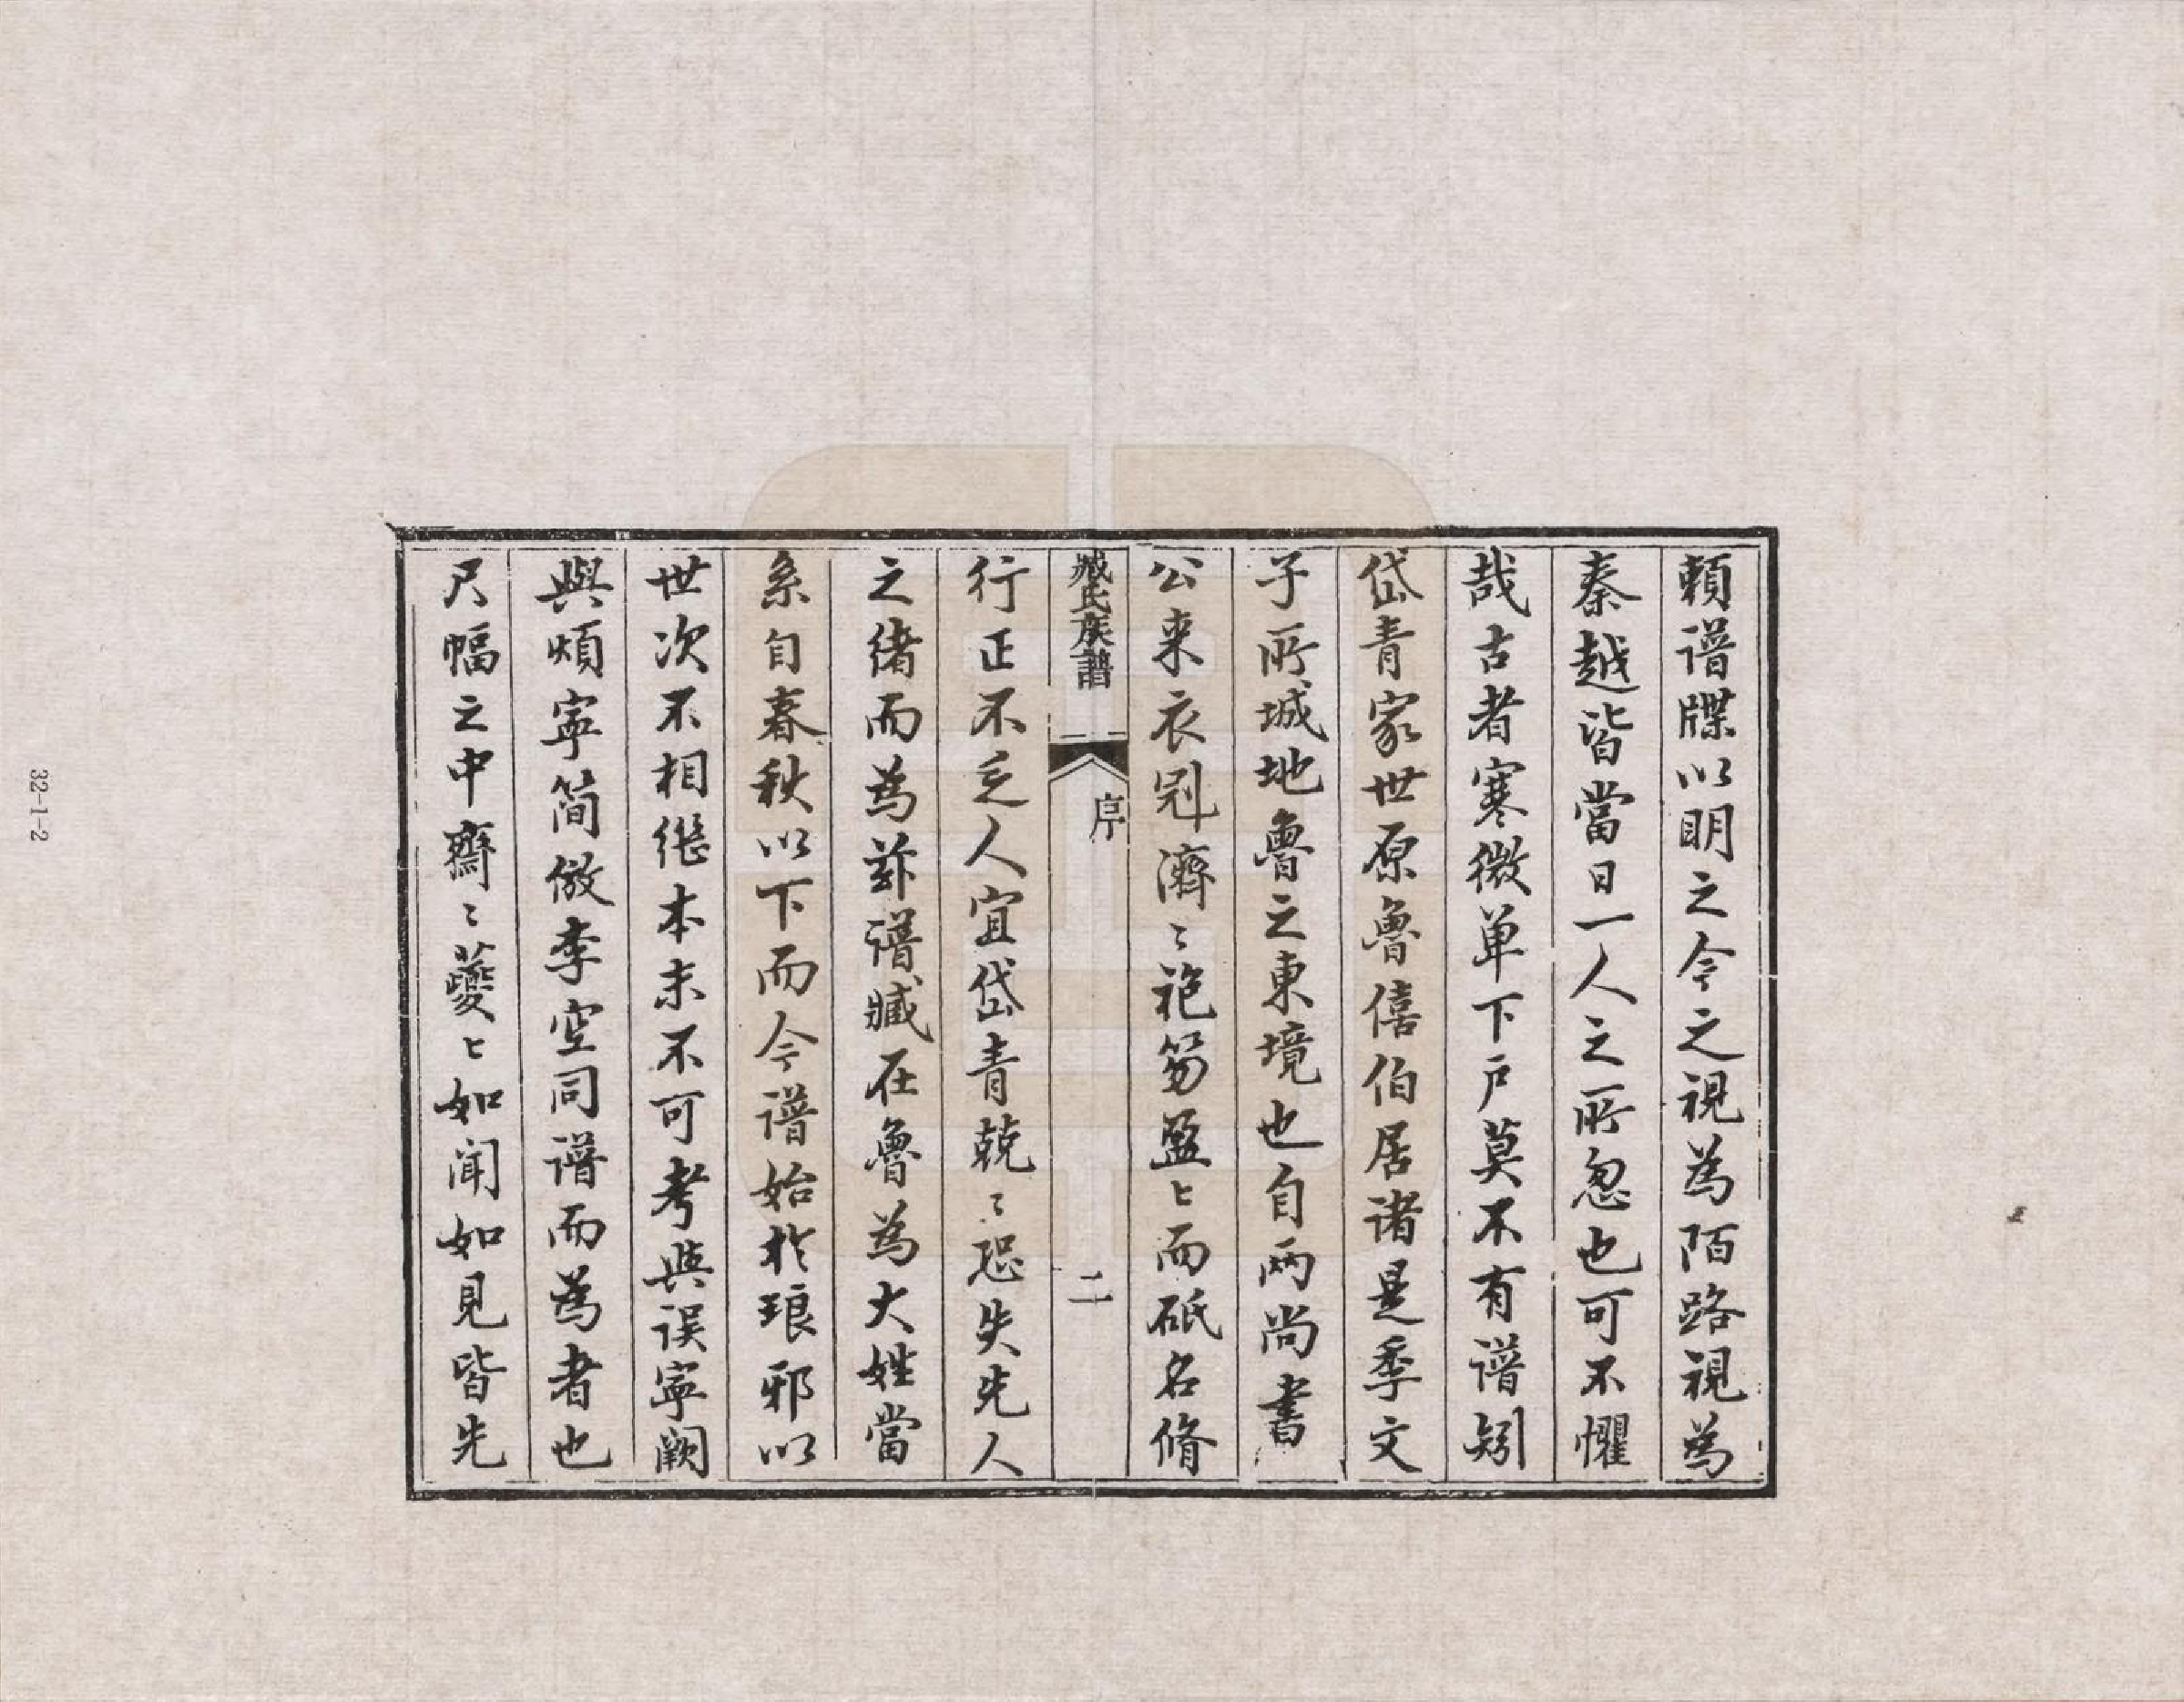 賴谱牒以明之今之視為陌路視為
秦越皆當日一人之所忽也可不懼
哉古者寒微单下户莫不有谱矧
岱青家世原魯僖伯居诸是季文
子所城地魯之東境也自两尚書
公来衣冠濟〻袍笏盈〻而砥名脩
臧氏族譜
序
二
行正不乏人宜岱青兢〻恐失先人
之绪而為兹谱臧在魯為大姓當
系自春秋以下而今谱始於琅邪以
世次不相继本末不可考與误寧阙
與煩寧简倣李空同谱而為者也
尺幅之中齋〻夔〻如闻如見皆先
32-1-2